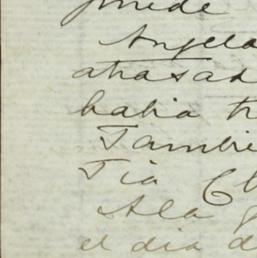 puede
Angela
atrasad
habia tr
Tambie
Tia
A la
el dia d